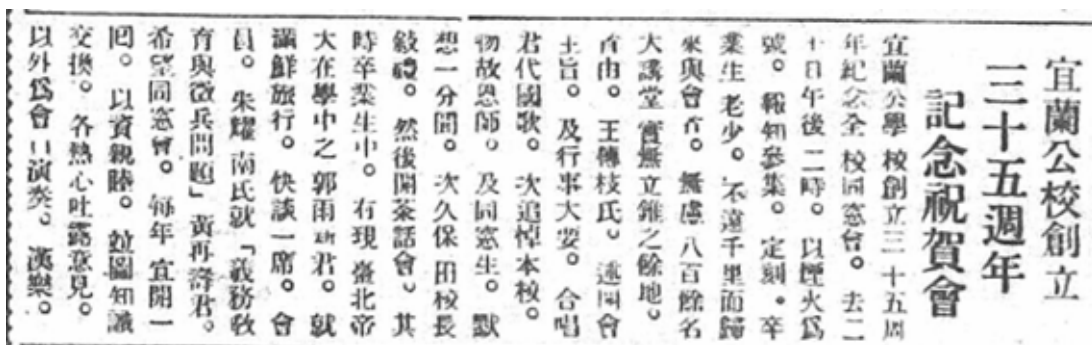 宜蘭公校創立
三十五週年
記念祝賀會
宜蘭公學 校創立三十五周
年紀念全 校同窓會。去二
十日午後 二時。以煙火爲
號。報知參集。定刻。卒
業生 老少。不遠千里而歸
來與會者。無慮八百餘名
大講堂 實無立錐之餘地。
首由。王傳枝氏。述開會
主旨。及行事大要。合唱
君代國歌。次追悼本校。
物故恩師。及同窓生。默
想一分間。次久保田校長
敍禮。然後開茶話會。其
時卒業生中。有現臺北帝
大在學中之郭雨新君。就
滿鮮旅行。快談一席。會
員。朱耀 南氏就「義務敎
育與徵兵問題」黃再壽君。
希望同窓會。每年 宜開一
回。以資親睦。並圖知識
交換。各熱心吐露意見。
以外爲會 演奏。漢樂。